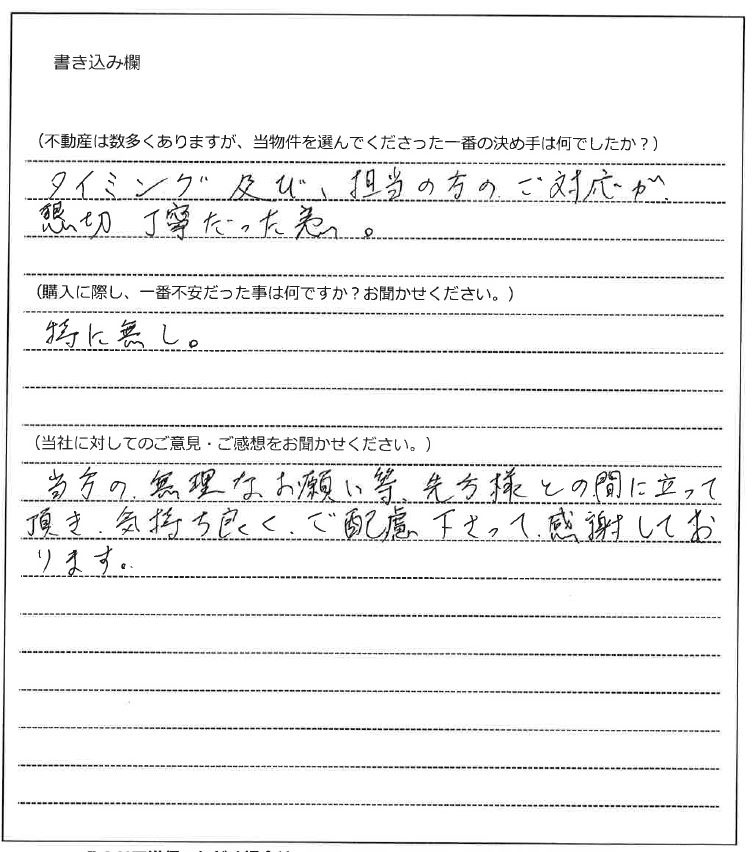 書き込み欄
(不動産は数多くありますが、当物件を選んでくださった一番の決め手は何でしたか?)
タイミング及び、担当の方の、ご対応が、
懇切丁寧だった為。
(購入に際し、一番不安だった事は何ですか?お聞かせください。)
特に無し。
(当社に対してのご意見・ご感想をお聞かせください。)
当方の、無理なお願い等、先方様との間に立って
頂き、気持ち良く、ご配慮下さって、感謝してお
ります。